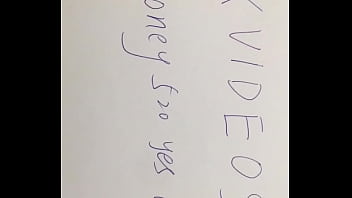 X VIDEOS
oney 520 yes